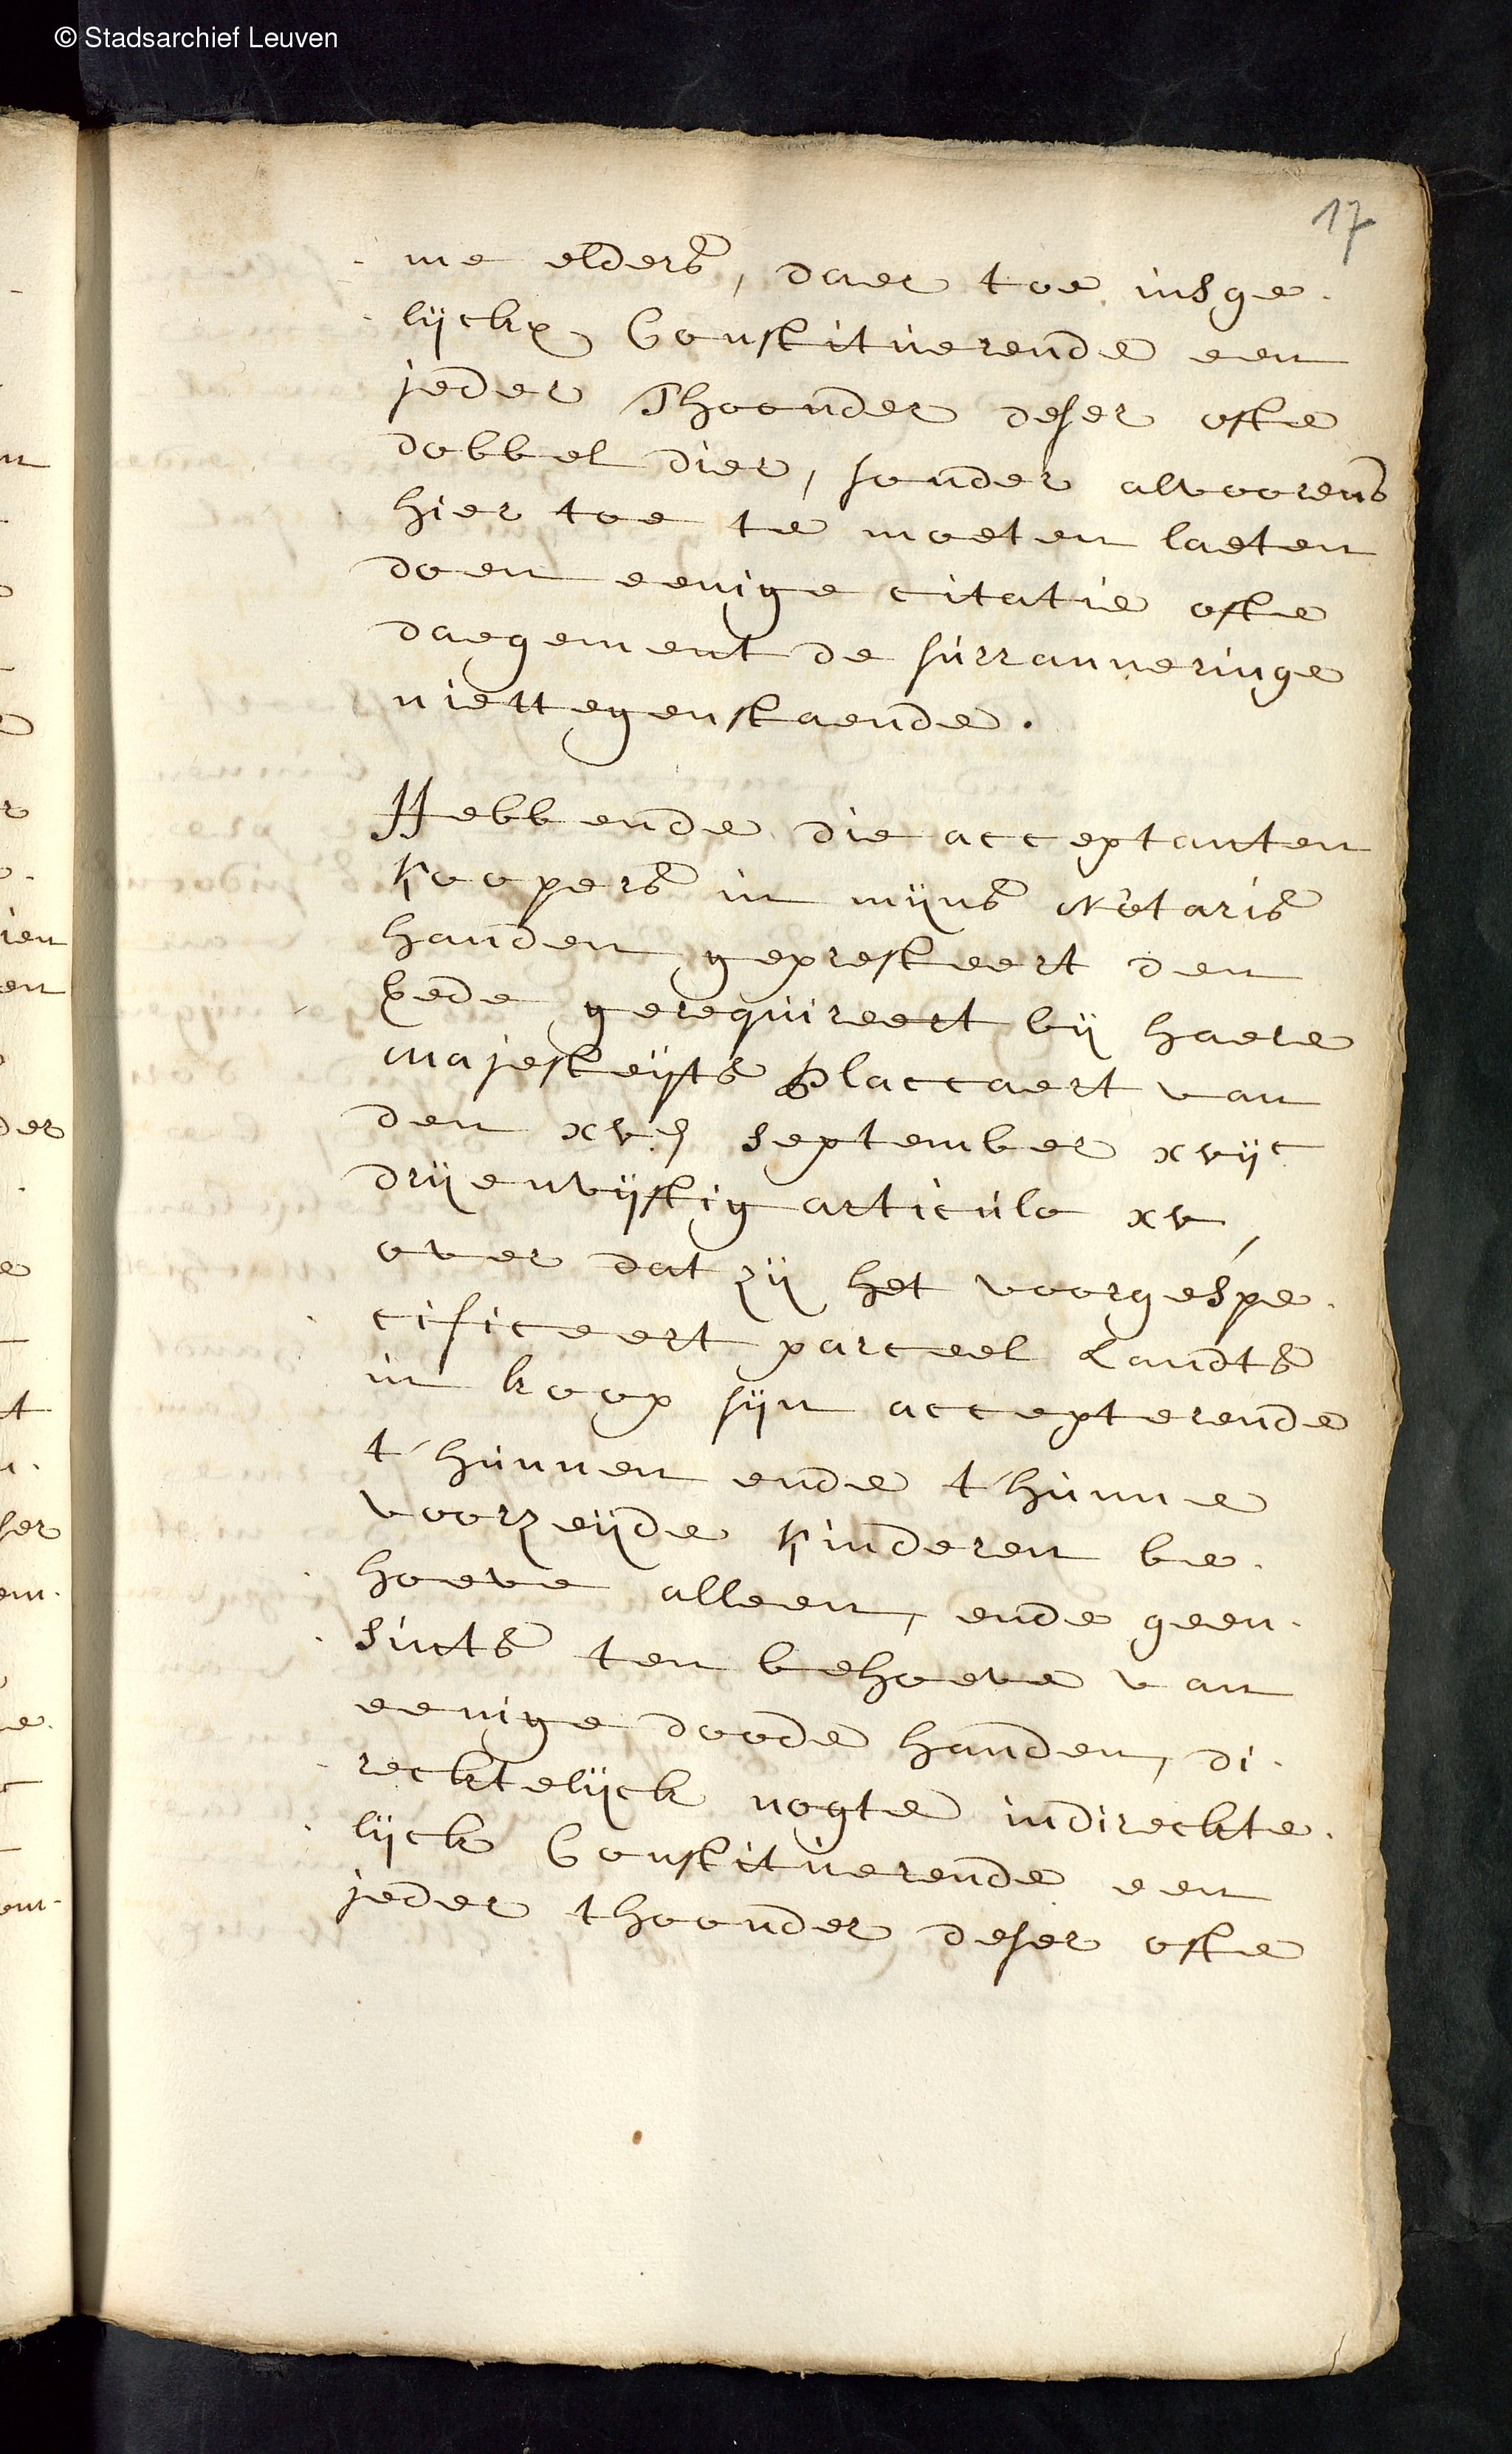 © Stadsarchief Leuven
17
me elders, daer toe insge.
lijckx Constituerende een
jeder Thoonder deser ofte
dobbel dier, sonder alvoorens
hier toe te moeten laeten
doen eenige citatie ofte
daegement de surranneringe
niettegenstaende.
Hebbende die acceptanten
Koopers in mijns Notaris
handen gepresteert den
Eede gerequireert bij haere
majesteijts Placcaert van
den xv september xvijc
drijenvijftig articulo xv,
over dat zij het voorgespe.
cificeert parceel Landts
in koop sijn accepterende
t'hunnen ende t'hunne
voorzeijde Kinderen be.
hoeve alleen, ende geen.
sints ten behoeve van
eenige doode handen, di.
recktelijck nogte indireckte.
lijck Constituerende een
jeder thoonder deser ofte